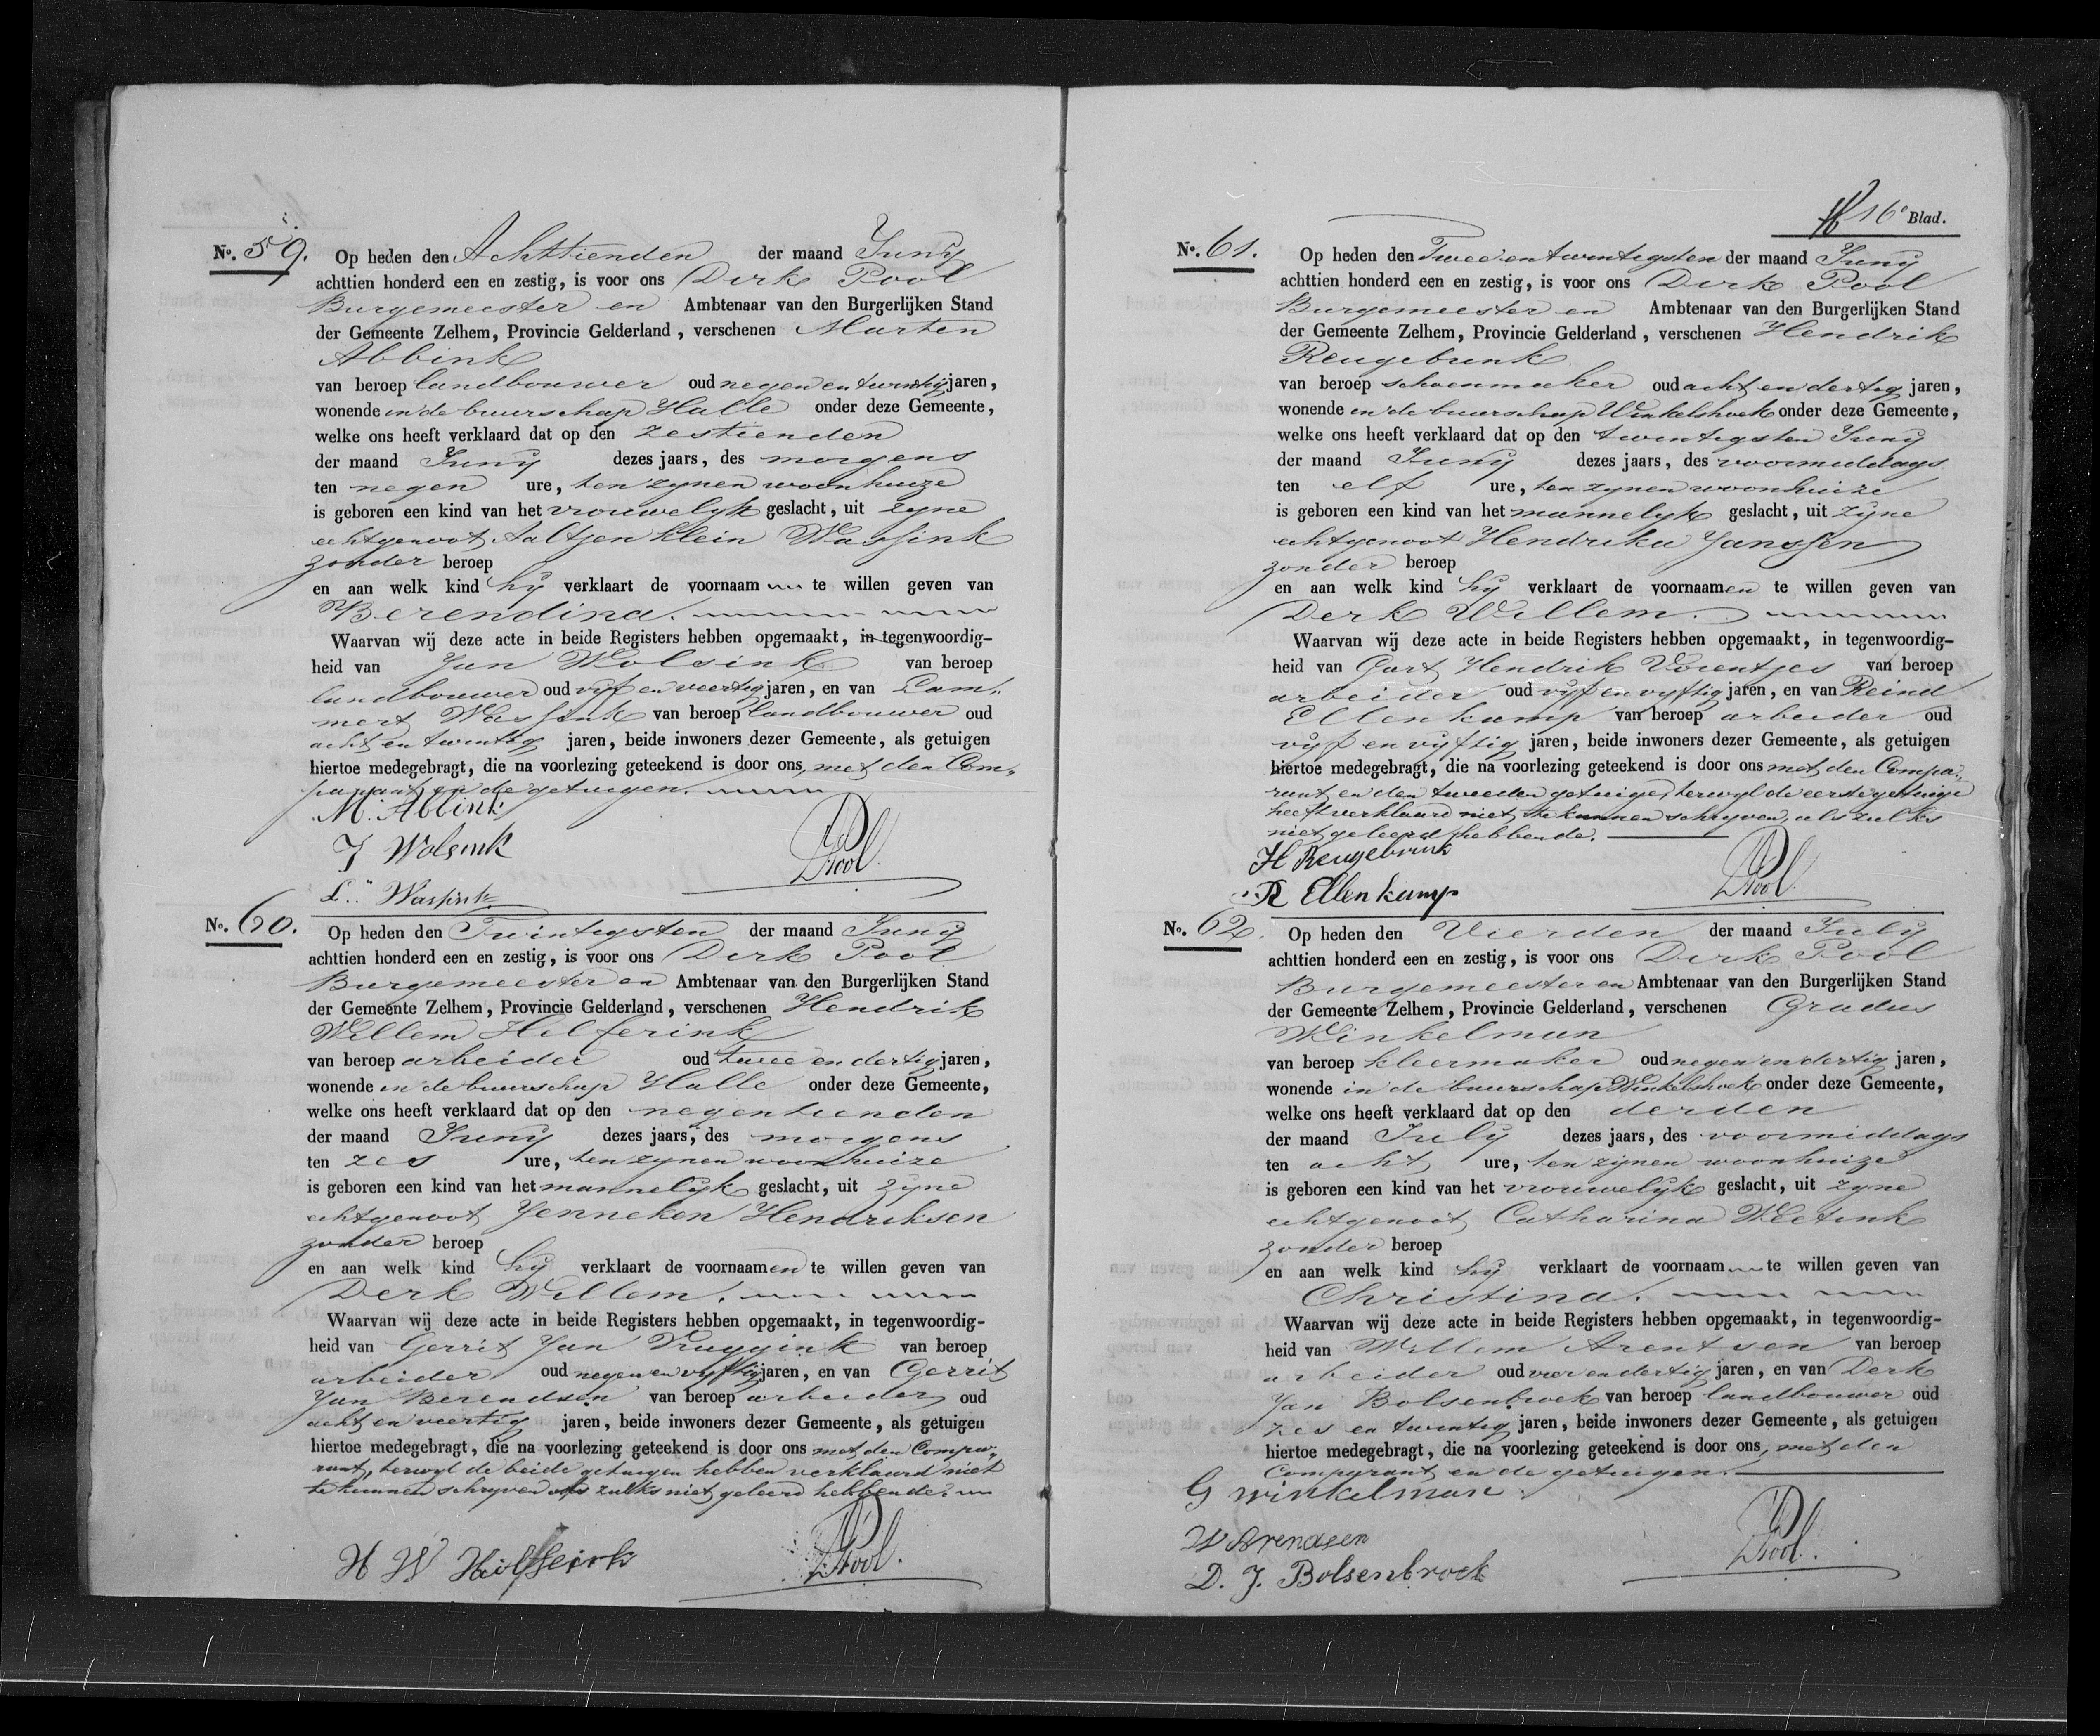 No. 59. Op heden den Achttienden der maand Juny
achttien honderd een en zestig, is voor ons Derk Pool
Burgemeester en Ambtenaar van den Burgerlijken Stand
der Gemeente Zelhem, Provincie Gelderland, verschenen Marten
Abbink
van beroep landbouwer oud negen en twintig jaren,
wonende in de buurschap Halle onder deze Gemeente,
welke ons heeft verklaard dat op den zestienden
der maand Juny dezes jaars, des morgens
ten negen ure, ten zynen woonhuize
is geboren een kind van het vrouwelyk geslacht, uit zyne
echtgenoot Aaltjen Klein Wassink
zonder beroep
en aan welk kind hy verklaart de voornaam te willen geven van
Berendina.
Waarvan wij deze acte in beide Registers hebben opgemaakt, in tegenwoordig-
heid van Jan Wolsink van beroep
landbouwer oud vyf en veertig jaren, en van Lam-
mert Wassink van beroep landbouwer oud
acht en twintig jaren, beide inwoners dezer Gemeente, als getuigen
hiertoe medegebragt, die na voorlezing geteekend is door ons, met den Com-
parant en de getuigen.
M. Abbink
J Wolsink
DPool.
L. Wassink
No. 60. Op heden den Twintigsten der maand Juny
achttien honderd een en zestig, is voor ons Derk Pool
Burgemeester en Ambtenaar van den Burgerlijken Stand
der Gemeente Zelhem, Provincie Gelderland, verschenen Hendrik
Willem Hilferink
van beroep arbeider oud twee en dertig jaren,
wonende in de buurschap Halle onder deze Gemeente,
welke ons heeft verklaard dat op den negentienden
der maand Juny dezes jaars, des morgens
ten zes ure, ten zynen woonhuize
is geboren een kind van het mannelyk geslacht, uit zyne
echtgenoot Jenneken Hendriksen
zonder beroep
en aan welk kind hy verklaart de voornaamen te willen geven van
Derk Willem.
Waarvan wij deze acte in beide Registers hebben opgemaakt, in tegenwoordig-
heid van Gerrit Jan Kruggink van beroep
arbeider oud negen en vyftig jaren, en van Gerrit
Jan Berendsen van beroep arbeider oud
acht en veertig jaren, beide inwoners dezer Gemeente, als getuigen
hiertoe medegebragt, die na voorlezing geteekend is door ons met den Compa-
rant, terwyl de beide getuigen hebben verklaard niet
te kunnen schryven als zulks niet geleerd hebbende.
H W Hilferink
DPool.
16e Blad.
No. 61. Op heden den Twee en twintigsten der maand Juny
achttien honderd een en zestig, is voor ons Derk Pool
Burgemeester en Ambtenaar van den Burgerlijken Stand
der Gemeente Zelhem, Provincie Gelderland, verschenen Hendrik
Reugebrink
van beroep schoenmaker oud acht en dertig jaren,
wonende in de buurschap Winkelshoek onder deze Gemeente,
welke ons heeft verklaard dat op den twintigsten Juny
der maand Juny dezes jaars, des voormiddags
ten elf ure, ten zynen woonhuize
is geboren een kind van het mannelyk geslacht, uit zijne
echtgenoot Hendrika Janssen
zonder beroep
en aan welk kind hy verklaart de voornaamen te willen geven van
Derk Willem.
Waarvan wij deze acte in beide Registers hebben opgemaakt, in tegenwoordig-
heid van Gart Hendrik Vorentjes van beroep
arbeider oud vyf en vyftig jaren, en van Reind
Ellenkamp van beroep arbeider oud
vyf en vyftig jaren, beide inwoners dezer Gemeente, als getuigen
hiertoe medegebragt, die na voorlezing geteekend is door ons met den Compa-
rant en den tweeden getuige, terwyl de eerste getuige
heeft verklaard niet te kunnen schryven, als zulks
niet geleerd hebbende.
H Reugebrink
R Ellenkamp
DPool.
No. 62. Op heden den Vierden der maand July
achttien honderd een en zestig, is voor ons Derk Pool
Burgemeester en Ambtenaar van den Burgerlijken Stand
der Gemeente Zelhem, Provincie Gelderland, verschenen Gradus
Winkelman
van beroep kleermaker oud negen en dertig jaren,
wonende in de buurschap Winkelshoek onder deze Gemeente,
welke ons heeft verklaard dat op den derden
der maand July dezes jaars, des voormiddags
ten acht ure, ten zijnen woonhuize
is geboren een kind van het vrouwelyk geslacht, uit zyne
echtgenoot Catharina Weetink
zonder beroep
en aan welk kind hy verklaart de voornaam te willen geven van
Christina.
Waarvan wij deze acte in beide Registers hebben opgemaakt, in tegenwoordig-
heid van Willem Arentsen van beroep
arbeider oud vier en dertig jaren, en van Derk
Jan Bolsenbroek van beroep landbouwer oud
zes en twintig jaren, beide inwoners dezer Gemeente, als getuigen
hiertoe medegebragt, die na voorlezing geteekend is door ons, met den
Comparant en de getuigen.
G winkelman
W Arendsen
D. J. Bolsenbroek
DPool.